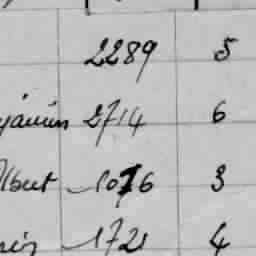 2289 5
jamin 2714 6
lbert 1076 3
1721 4